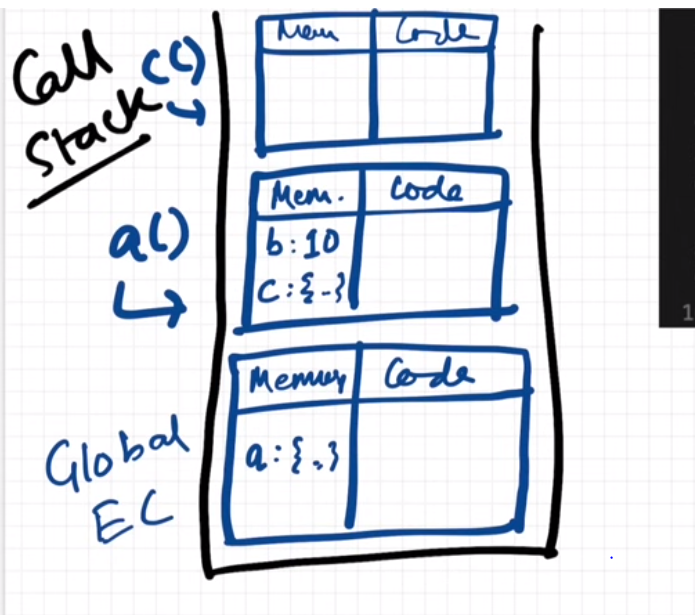 Call
Stack
c()
Mem
Code
a()
Mem.
Code
b:10
c:{..}
Global
EC
Memory
Code
a:{..}
1